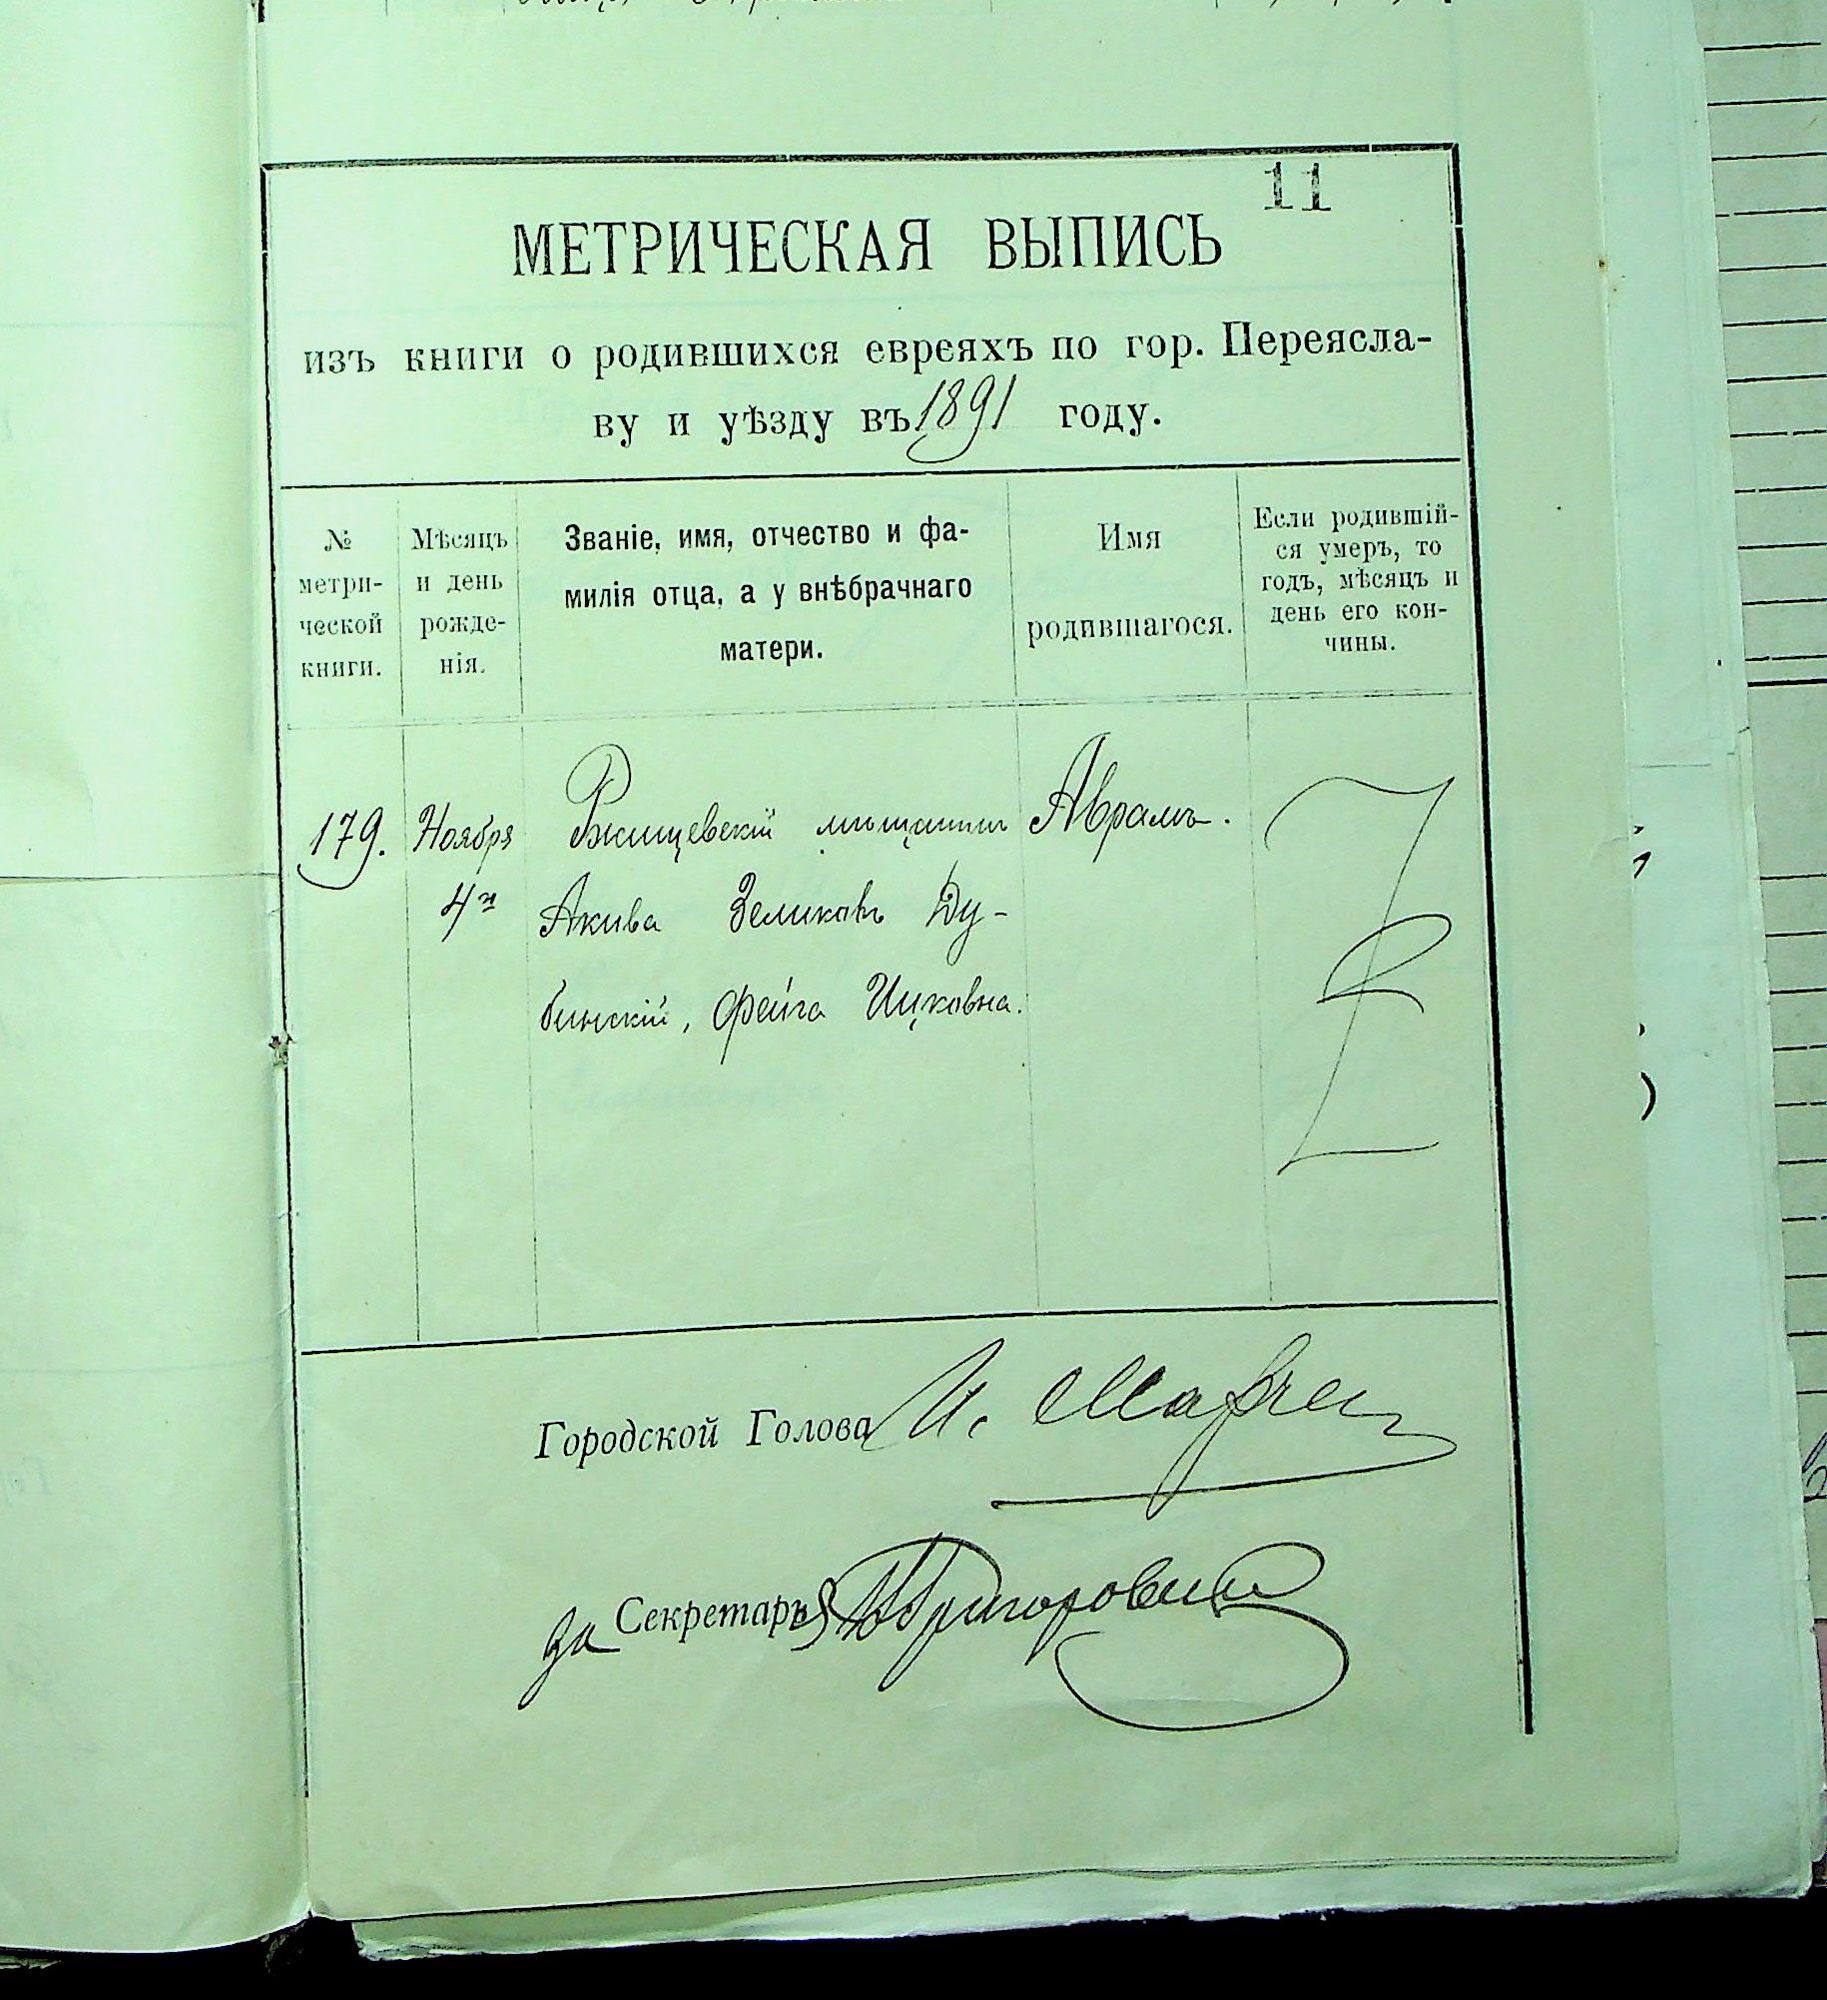 11
МЕТРИЧЕСКАЯ ВЫПИСЬ
изъ книги о родившихся евреяхъ по гор. Переясла-
ву и уѣзду въ 1891 году.
№
метри-
ческой
книги.
Мѣсяцъ
и день
рожде-
нія.
Званіе, имя, отчество и фа-
милія отца, а у внѣбрачнаго
матери.
Имя
родившагося.
Если родившій-
ся умеръ, то
годъ, мѣсяцъ и
день его кон-
чины.
179.
Ноября
4го
Ржищевскій мѣщанинъ
Акива Зеликовъ Ду-
бинскій, Фейга Ицковна.
Аврамъ.
Городской Голова И.
за Секретарь Григорович